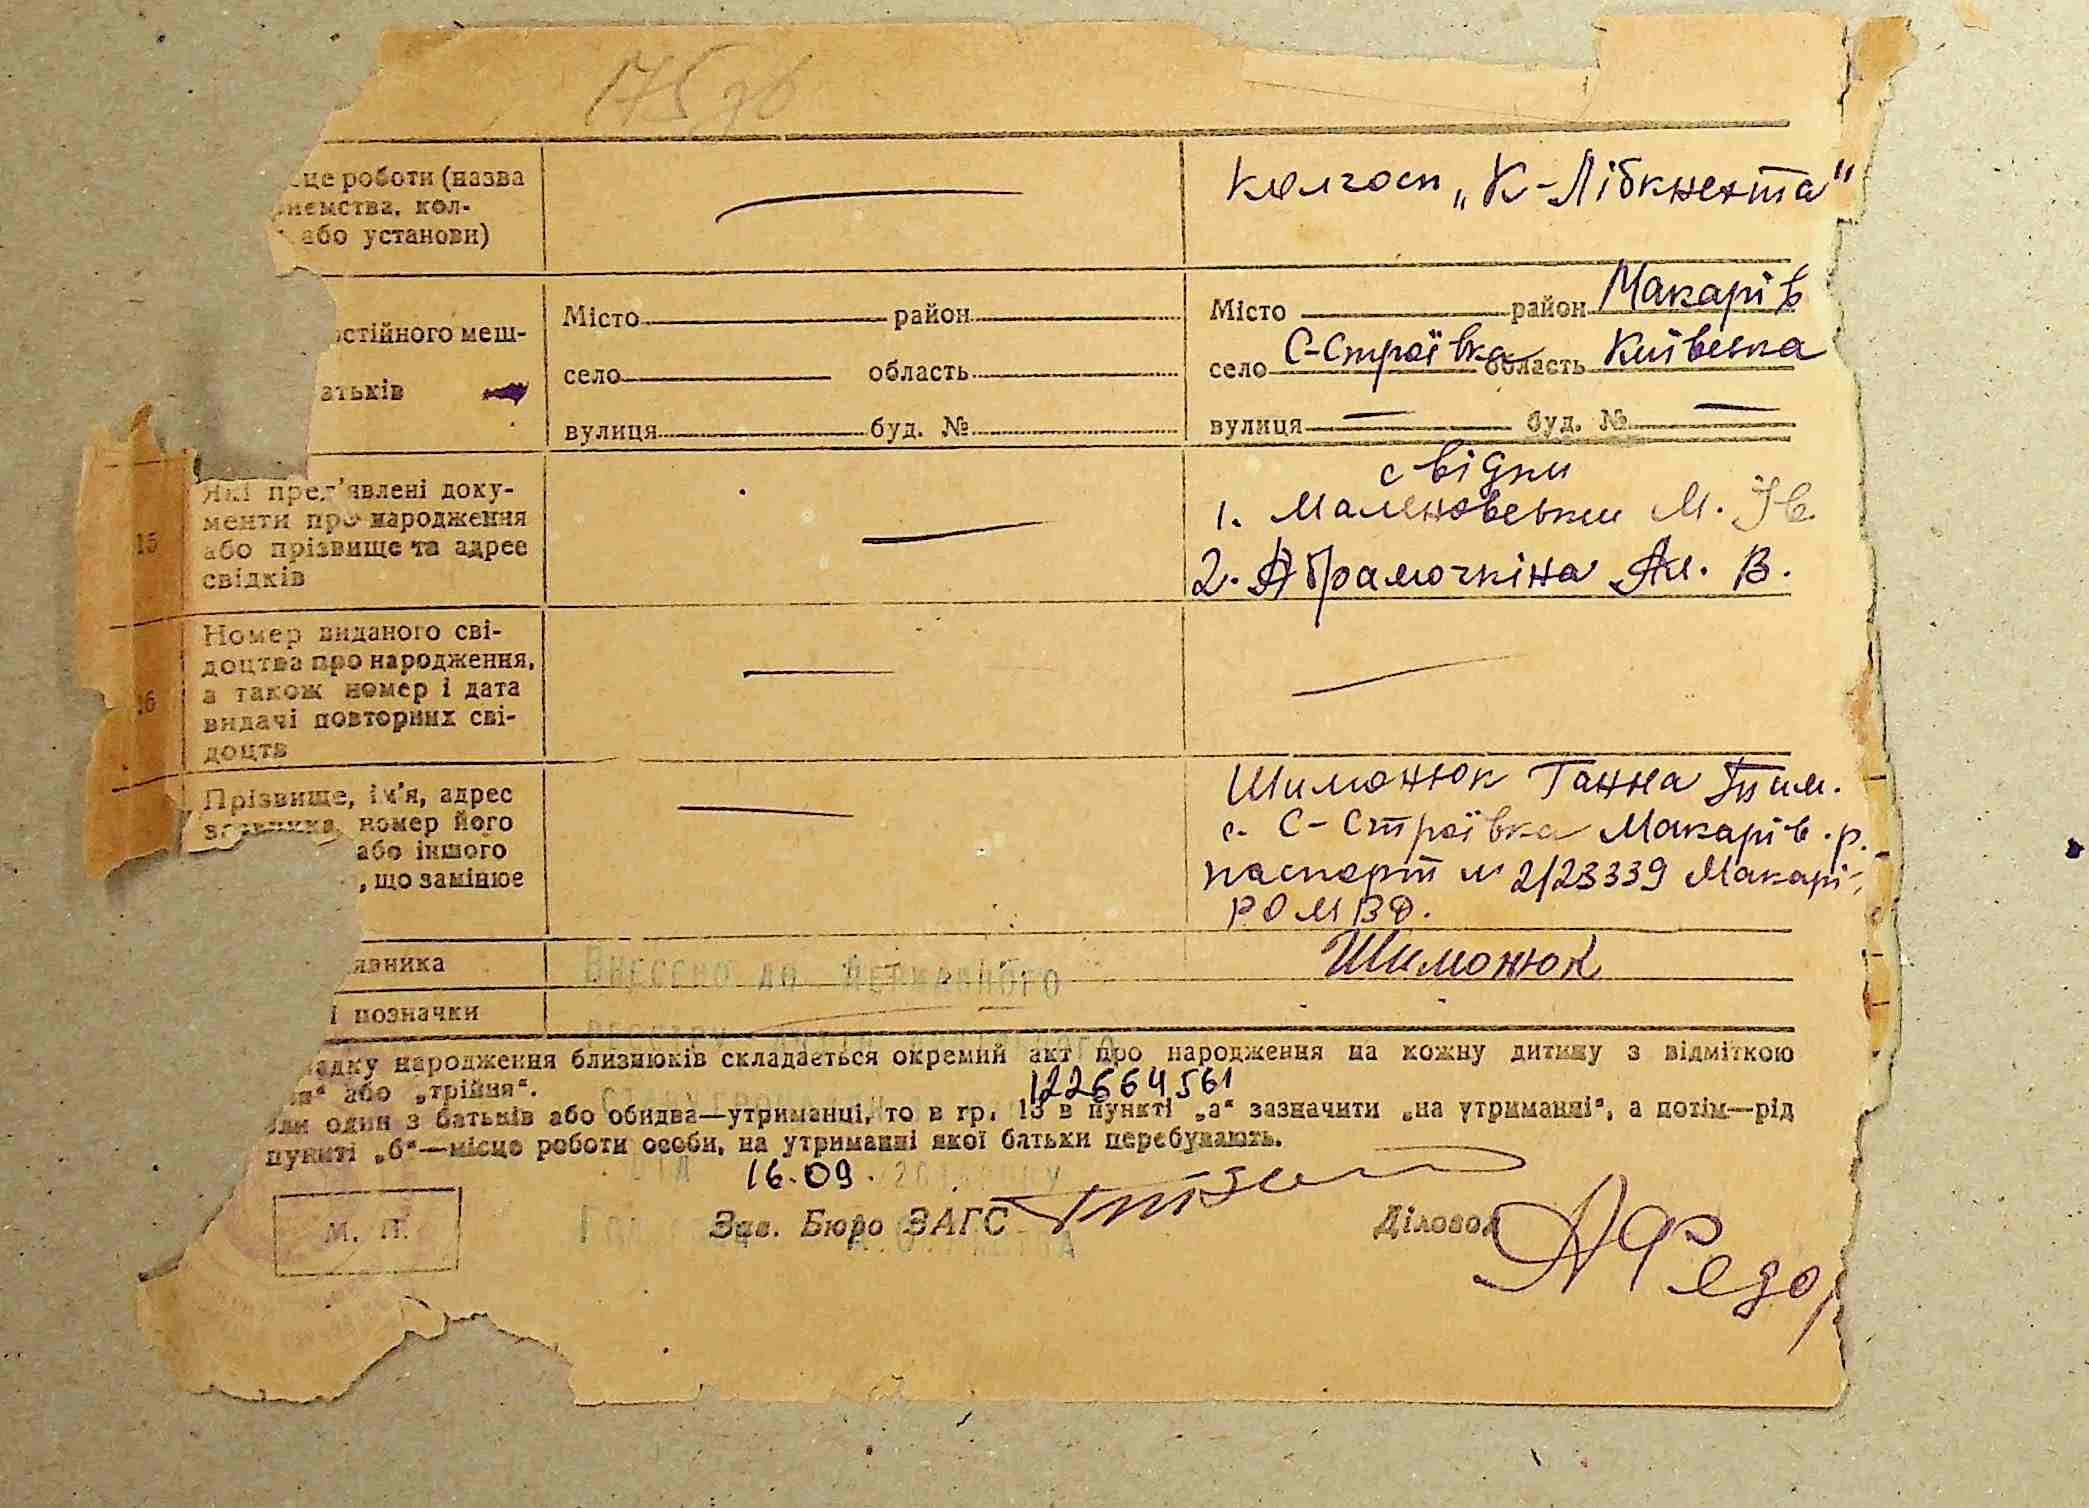 175 зв
це роботи (назва
иємства, кол-
або установи)
колгосп „К-Лібкнехта"
остійного меш-
атьків
Місто район
село область
вулиця буд. №
Місто район Макарів
село С-Строївка область Київська
вулиця — буд. № —
15
Які пред'явлені доку-
менти про народження
або прізвище та адрес
свідків
свідки
1. Маленовський М. Ів.
2. Абрамочкіна Ал. В.
16
Номер виданого сві-
доцтва про народження,
а також номер і дата
видачі повторних сві-
доцтв
Прізвище, ім'я, адрес
заявника, номер його
або іншого
, що замінює
Шимонюк Ганна Тим.
с. С-Строївка Макарів. р.
паспорт № 2/23339 Макарі-
РОМВД.
явника
Шимонюк
і позначки
Внесено до Державного
адку народження близнюків складається окремий акт про народження на кожну дитину з відміткою
ня“ або „трійня“.
122664561
один з батьків або обидва—утриманці, то в гр. 13 в пункті „а“ зазначити „на утриманні“, а потім—рід
пункті „б“—місце роботи особи, на утриманні якої батьки перебувають.
від 16.09.
М. П.
Зав. Бюро ЗАГС
Діловод
АФедор